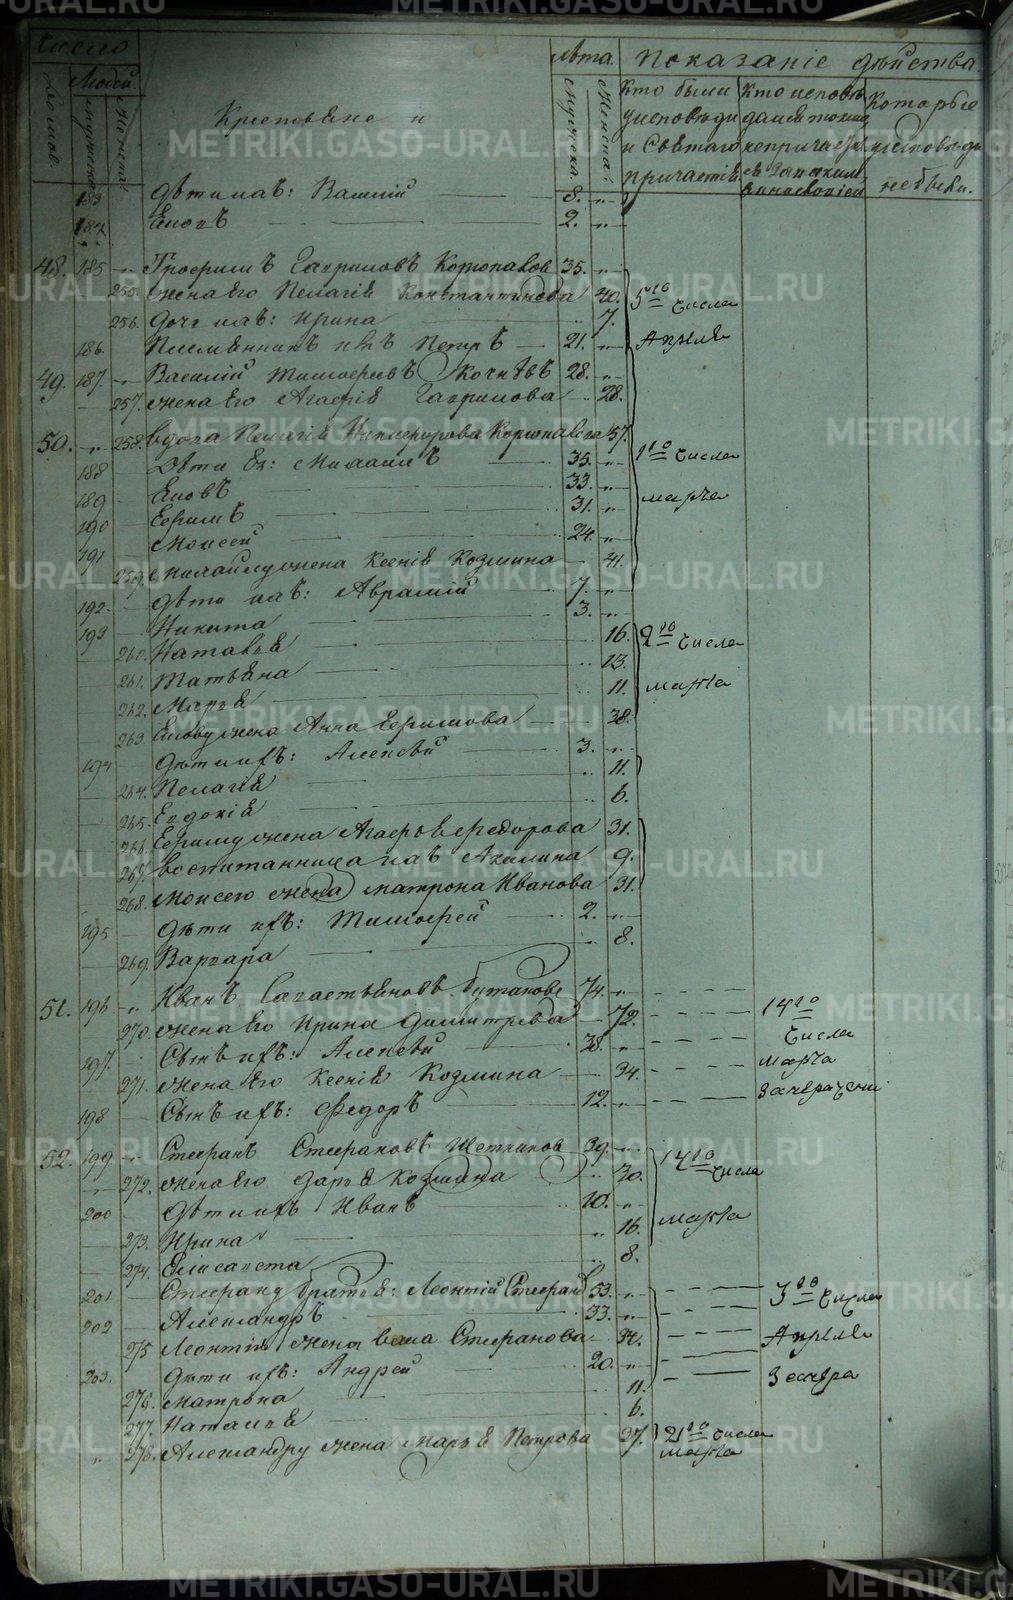 Число
Лѣта
Показаніе дѣйства
Домов.
Людей
мужеска
женска
Крестьяне и
мужеска
женска
Кто были
у исповѣди
и Святаго
причастія
Кто исповѣ
дался токмо
а не причаст
Которые
у исповѣди
не были.
183 Дѣти ихъ: Василій 8. "
184 Іовъ 2. "
48. 185 " Трофимъ Гавриловъ 35. "
255. жена Его Пелагія Константинова 40.
256. дочь ихъ: Ирина 7.
186. Племянникъ ихъ Петръ 21. "
49. 187. " Василій Тимофеевъ Кочневъ 28. "
257. жена Его Агафія Гаврилова 28.
5го числа
Апреля
50. " 258. вдова Пелагія Никифорова 57.
188 Дѣти Ея: Михаилъ 35. "
189 Іовъ 33. "
190 Ефимъ 31. "
191 Моисей 24. "
259. Михаилу жена Ксенія Козмина 41.
192. дѣти ихъ: Аврамій 7. "
193 Никита 3. "
1го числа
марта
260. Наталья 16.
261. Татьяна 13.
262. Марья 11.
263. Іову жена Анна Ефимова 38.
2го числа
марта
194 дѣти ихъ: Алексей 3. "
264. Пелагія 11.
265. Евдокія 6.
266. Ефиму жена Агафья Федорова 31.
267. воспитанница ихъ Акилина 9.
268. Моисею жена Матрона Иванова 31.
195 дѣти ихъ: Тимофей 2. "
269. Варвара 8.
51. 196 " Иванъ Савастьяновъ 74. "
270. жена Его Ирина Димитрева 72.
197. Сынъ ихъ: Алексей 38. "
271. жена Его Ксенія Козмина 34.
198 Сынъ ихъ: Федоръ 12. "
14го
числа
марта
52. 199. " Стефанъ Стефановъ Щетников 39. "
272. жена Его Дарья Козмина 30.
200 Дѣти ихъ Иванъ 10. "
273. Ирина 16.
274. Елисавета 8.
14го
числа
марта
201 Стефану братья: Леонтій Стефанов 53. "
202 Александръ 33. "
275 Леонтія жена Стефанова 34.
203. дѣти ихъ: Андрей 20. "
276. Матрона 11.
277. Наталья 6.
3го числа
Апреля
" 278. Александру жена Марья Петрова 37.
21го числа
марта
METRIKI.GASO-URAL.RU